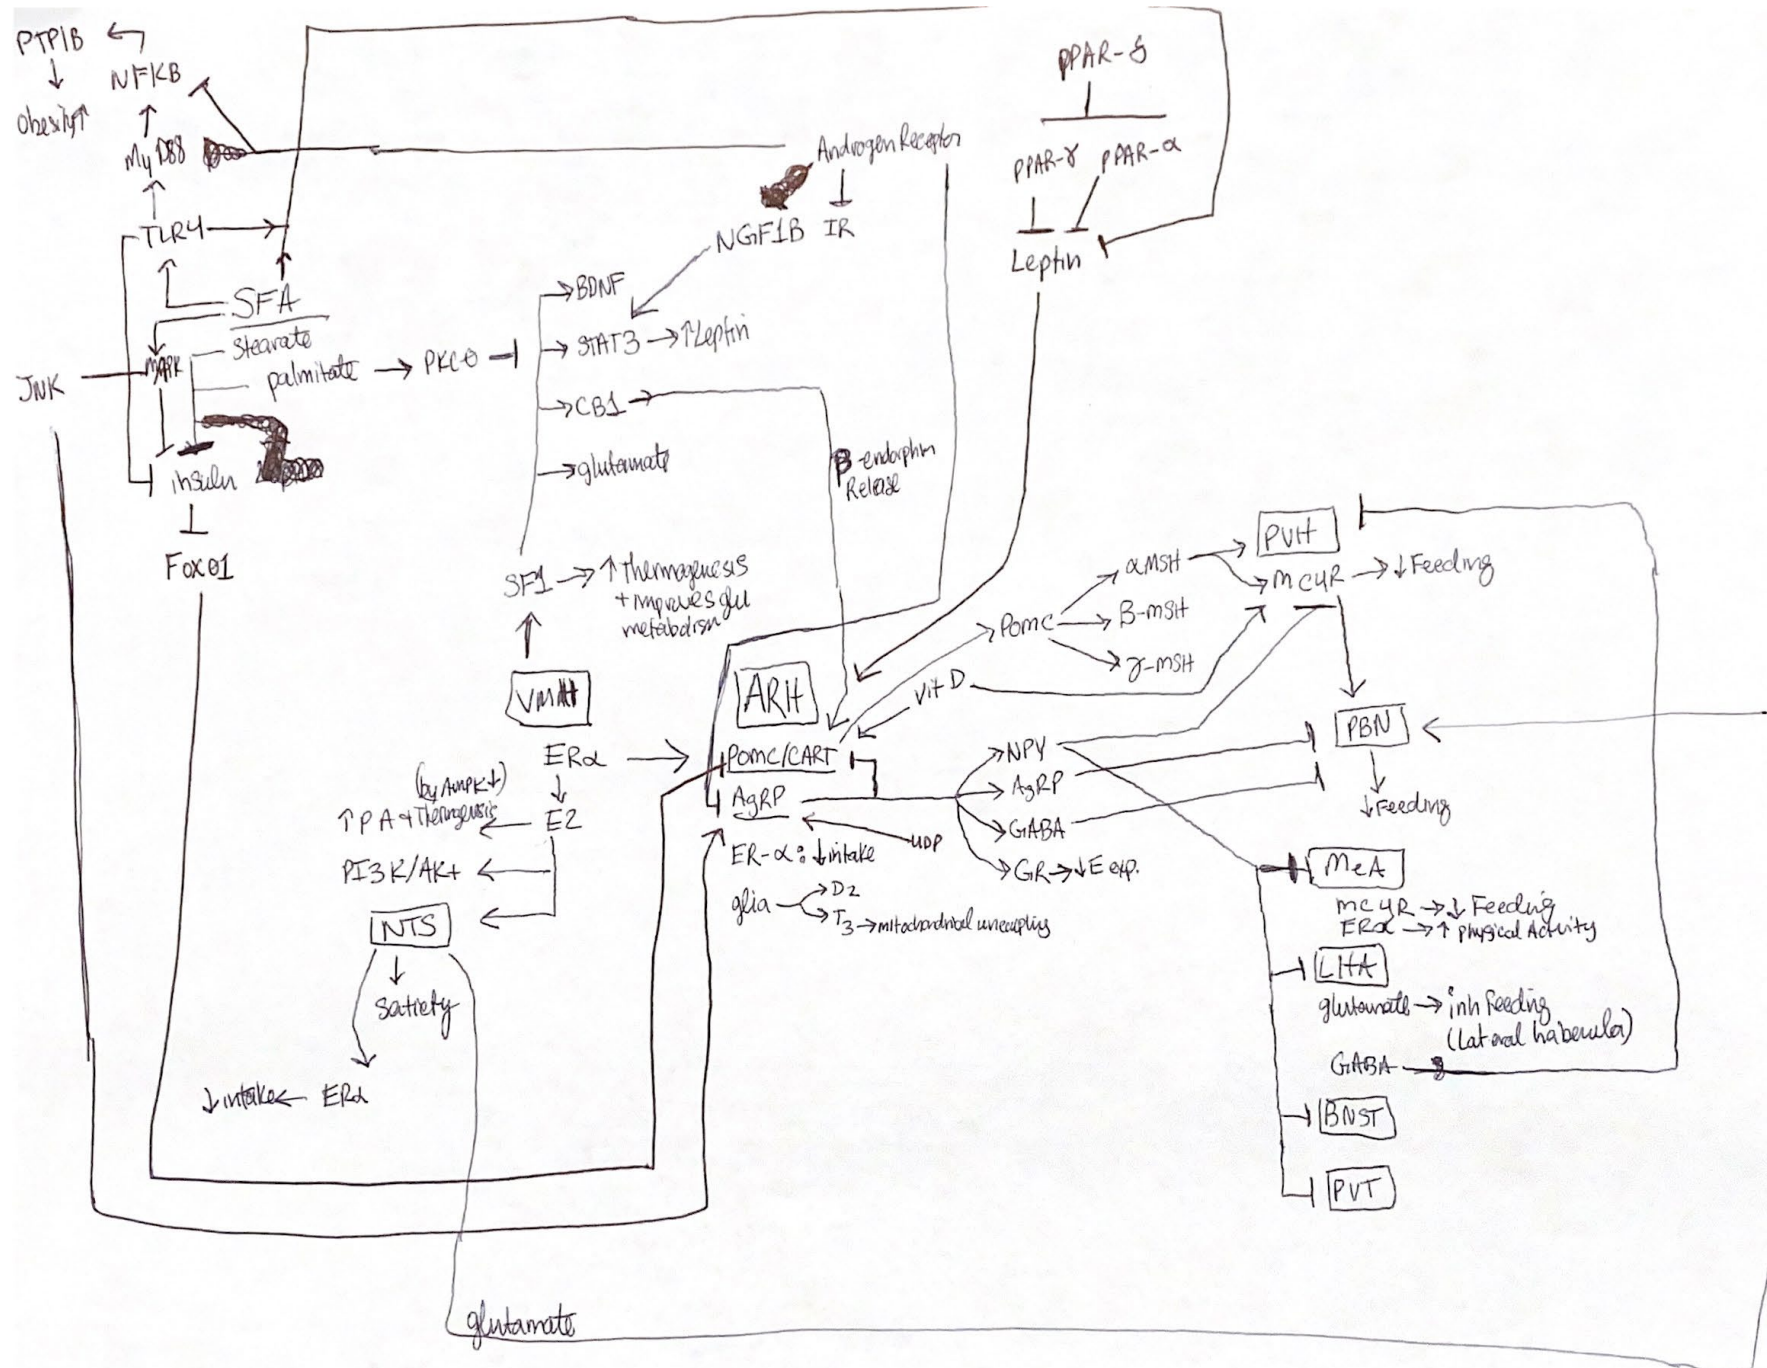 PTP1B
NFKB
Obesity↑
MyD88
TLR4
SFA
Stearate
palmitate → PKCθ
MAPK
JNK
insulin
FoxO1
Androgen Receptor
NGF1B IR
PPAR-δ
PPAR-γ PPAR-α
Leptin
BDNF
STAT3 → ↑Leptin
CB1
glutamate
β-endorphin
Release
SF1 → ↑ thermogenesis
+ improves glu
metabolism
VMH
ERα
(by AMPK↓)
↑PA + Thermogenesis
E2
PI3K/AKt
NTS
Satiety
↓intake ← ERα
glutamate
ARH
POMC/CART
AgRP
ER-α: ↓intake
UDP
glia
D2
T3 → mitochondrial uncoupling
Vit D
POMC
αMSH
β-MSH
γ-MSH
NPY
AgRP
GABA
GR → ↓E exp.
PVH
MC4R → ↓Feeding
PBN
↓Feeding
MeA
MC4R → ↓ Feeding
ERα → ↑ physical Activity
LHA
glutamate → inh feeding
(Lateral habenula)
GABA
BNST
PVT